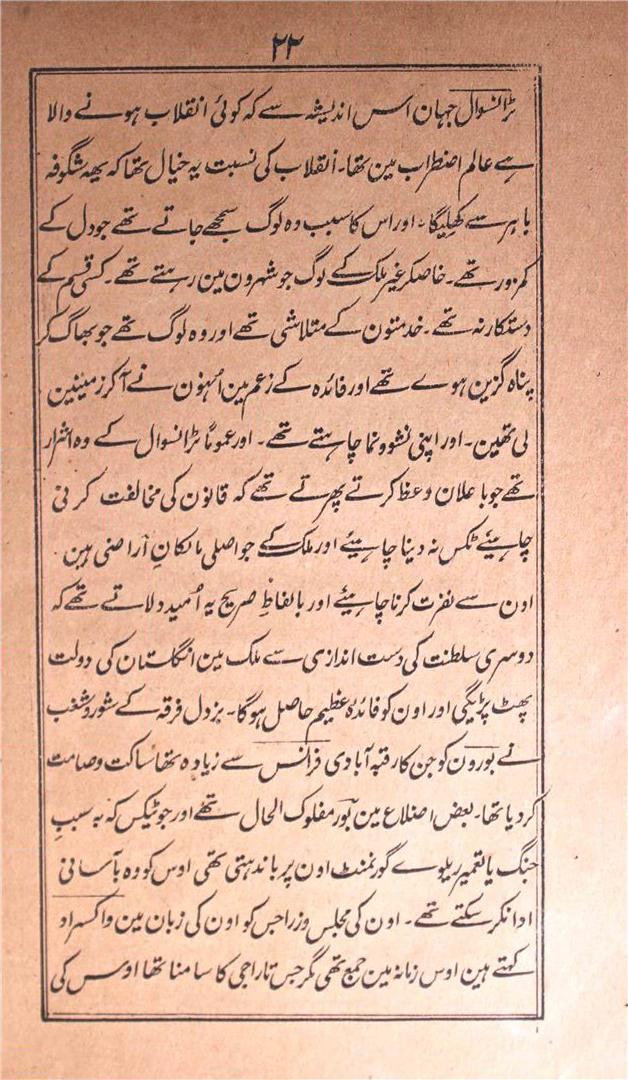 ۲۲
ٹرانسوال جہان اس اندیشہ سے کہ کوئی انقلاب ہونے والا
ہے عالم اضطراب مین تھا۔ انقلاب کی نسبت یہ خیال تھا کہ یہہ شگوفہ
باہر سے کھلیگا۔ اور اس کا سبب وہ لوگ سمجھے جاتے تھے جو دل کے
کمزور تھے۔ خاصکر غیر ملک کے لوگ جو شہرون مین رہتے تھے۔ کسی قسم کے
دستکار نہ تھے۔ خدمتون کے متلاشی تھے اور وہ لوگ تھے جو بھاگ کر
پناہ گزین ہوے تھے اور فائدہ کے زعم مین اُنہون نے آکر زمینین
لی تھین۔ اور اپنی نشوونما چاہتے تھے۔ اور عموماً ٹرانسوال کے وہ اشرار
تھے جو با علان وعظ کرتے پھرتے تھے کہ قانون کی مخالفت کرنی
چاہیئے ٹکس نہ دینا چاہیئے اور ملک کے جو اصلی مالکانِ آراضی ہین
اون سے نفرت کرنا چاہیئے اور بالفاظِ صریح یہ اُمید دلاتے تھے کہ
دوسری سلطنت کی دست اندازی سے ملک مین انگلستان کی دولت
پھٹ پڑیگی اور اون کو فائدۂ عظیم حاصل ہوگا۔ بزدل فرقہ کے شور و شغب
نے بورون کو جن کا رقبہ آبادی فرانس سے زیادہ تھا ساکت و صامت
کر دیا تھا۔ بعض اضلاع مین بور مفلوک الحال تھے اور جو ٹیکس کہ بہ سببِ
جنگ یا تعمیر ریلوے گورنمنٹ اون پر باندہتی تھی اوس کو وہ بآسانی
ادا نکر سکتے تھے۔ اون کی مجلس وزرا جس کو اون کی زبان مین واکسراد
کہتے ہین اوس زمانہ مین جمع تھی مگر جس تاراجی کا سامنا تھا اوس کی